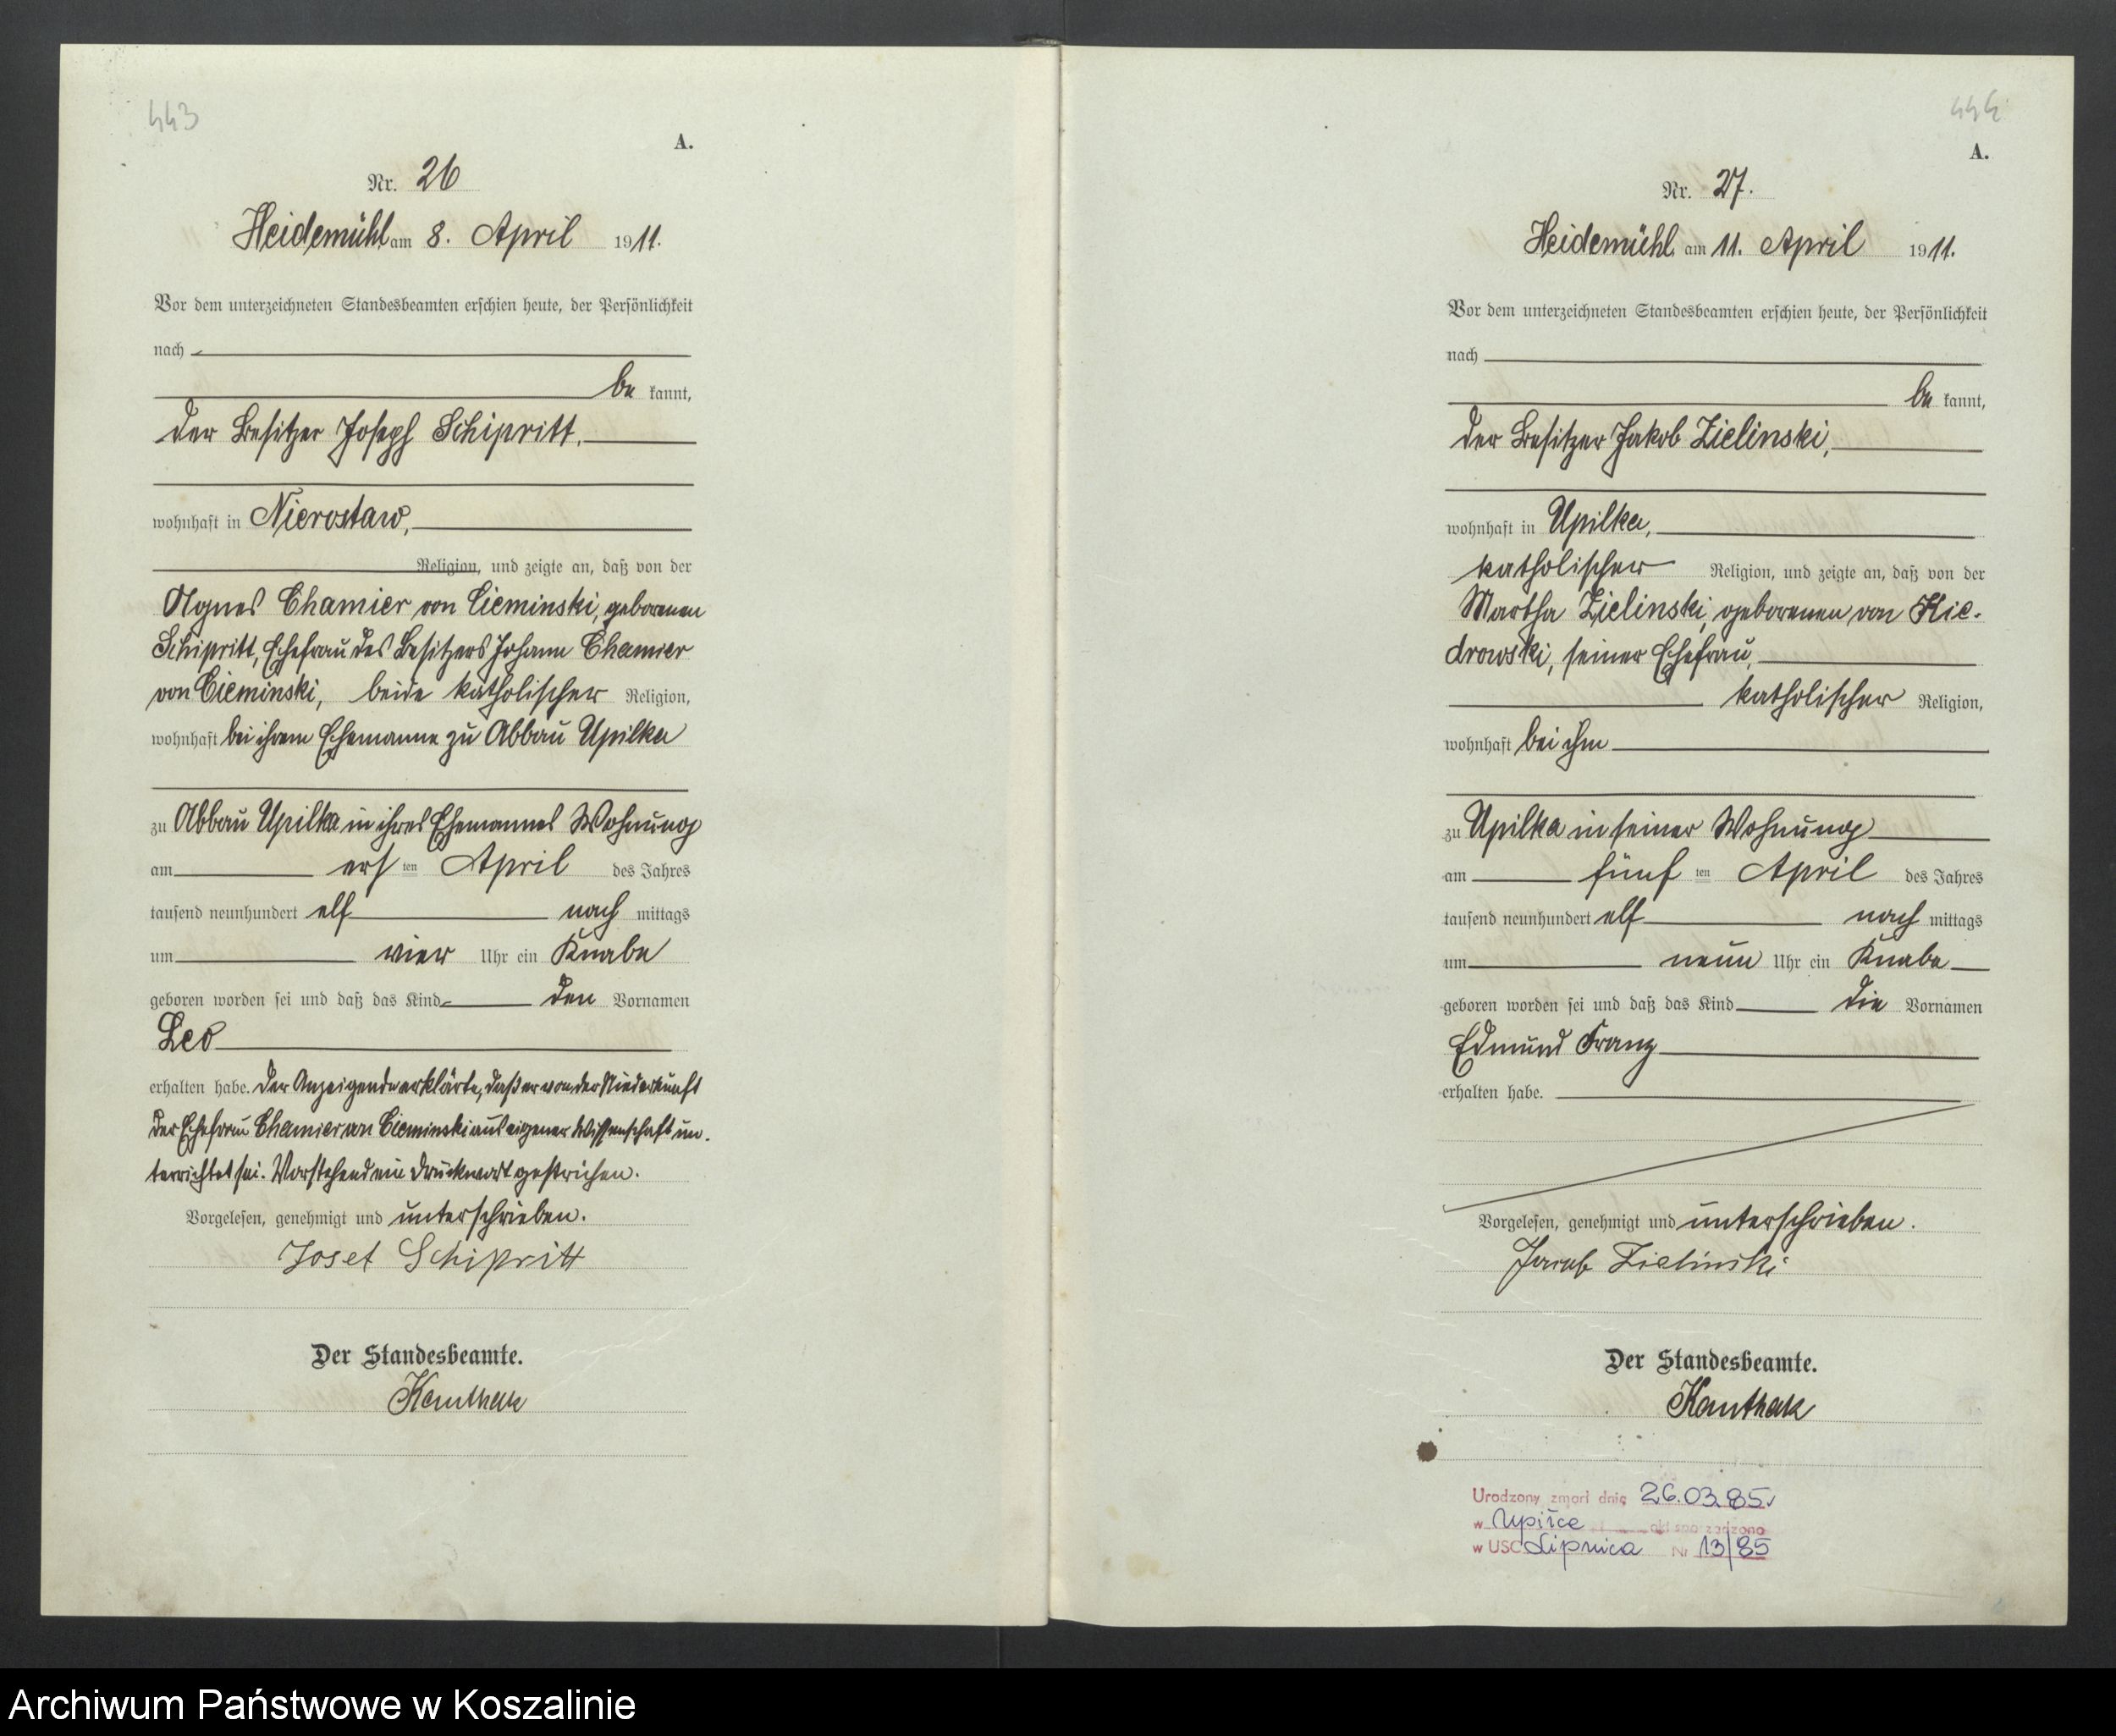 443
A.
Nr. 26
Heidemühl am 8. April 1911.
Vor dem unterzeichneten Standesbeamten erschien heute, der Persönlichkeit
nach
be kannt,
der Besitzer Joseph Schipritt,
wohnhaft in Nierostaw,
Religion, und zeigte an, daß von der
Agnes Chamier von Cieminski, geborenen
Schipritt, Ehefrau des Besitzers Johann Chamier
von Cieminski, beide katholischer Religion,
wohnhaft bei ihrem Ehemanne zu Abbau Upilka
zu Abbau Upilka in ihres Ehemannes Wohnung
am ersten April des Jahres
tausend neunhundert elf nach mittags
um vier Uhr ein Knabe
geboren worden sei und daß das Kind den Vornamen
Leo
erhalten habe. Der Anzeigende erklärte, daß er von der Niederkunft
der Ehefrau Chamier von Cieminski aus eigener Wissenschaft un-
terrichtet sei. Vorstehend ein Druckwort gestrichen.
Vorgelesen, genehmigt und unterschrieben.
Josef Schipritt
Der Standesbeamte.
Kauthak
444
A.
Nr. 27.
Heidemühl am 11. April 1911.
Vor dem unterzeichneten Standesbeamten erschien heute, der Persönlichkeit
nach
be kannt,
der Besitzer Jakob Zielinski,
wohnhaft in Upilka,
katholischer Religion, und zeigte an, daß von der
Martha Zielinski, geborenen von Kie-
drowski, seiner Ehefrau,
katholischer Religion,
wohnhaft bei ihm
zu Upilka in seiner Wohnung
am fünften April des Jahres
tausend neunhundert elf nach mittags
um neun Uhr ein Knabe
geboren worden sei und daß das Kind die Vornamen
Edmund Franz
erhalten habe.
Vorgelesen, genehmigt und unterschrieben.
Jacob Zielinski
Der Standesbeamte.
Kauthak
Urodzony zmarł dnia 26.03.85r
w Upiłce akt sporządzono
w USC Lipnica Nr 13/85
Archiwum Państwowe w Koszalinie